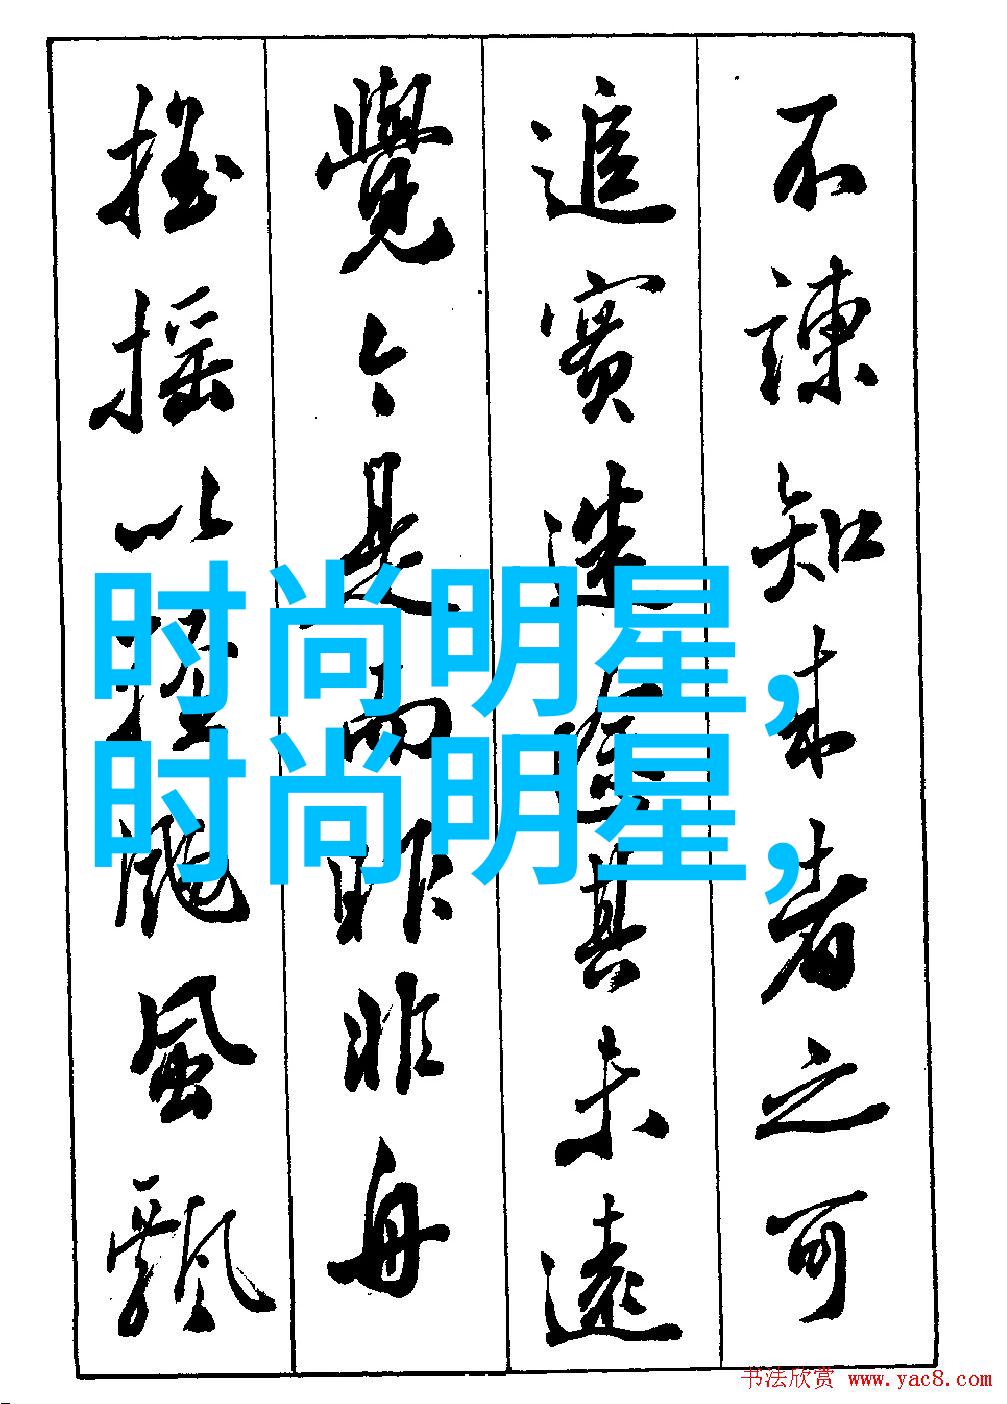 不諫知来者之可
追實迷途其未遠
覺今是而昨非舟
摇摇以輕颺風飄
时尚明星，
时尚明星，
书法欣赏 www.yac8.com